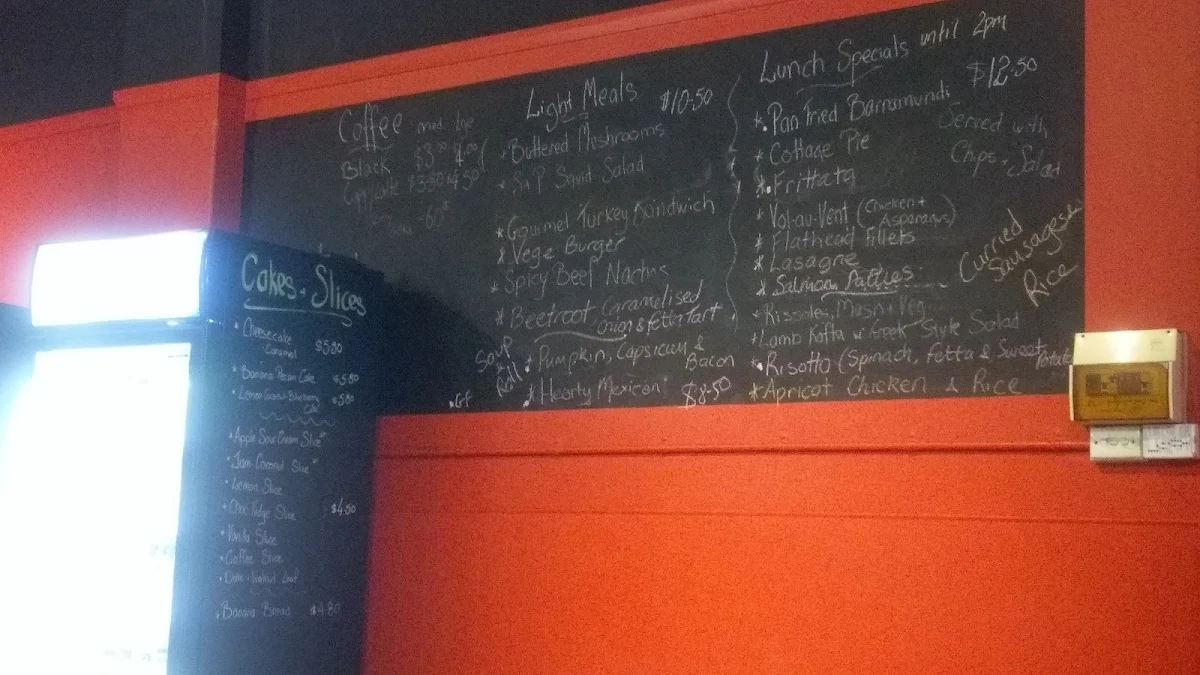 Coffee med lge
Black $3.50 4.00
Light Meals $10.50
Buttered Mushrooms
S+P Squid Salad
* Gourmet Turkey Sandwich
* Vege Burger
* Spicy Beef Nachos
* Beetroot Caramelised
Onion & Fetta Tart
Soup + Roll
* Pumpkin, Capsicum & Bacon
* Hearty Mexican $8.50
• GF
Lunch Specials until 2pm
$12.50
*. Pan Fried Barramundi
* Cottage Pie
*. Frittata
* Vol-au-Vent (Chicken + Asparagus)
* Flathead Fillets
* Lasagne
* Salmon Patties
* Rissoles, Mash + Veg
* Lamb Kofta w Greek Style Salad
*. Risotto (Spinach, Fetta & Sweet Potato
* Apricot Chicken & Rice
Served with
Chips + Salad
Curried
Sausages &
Rice
Cakes + Slices
• Cheesecake
Caramel $5.80
• Banana Pecan Cake $5.80
• Lemon Coconut Blueberry Cake $5.80
• Apple Sour Cream Slice
• Jam Coconut Slice
• Lemon Slice
• Choc Fudge Slice $4.50
• Vanilla Slice
• Coffee Slice
• Date + Walnut Loaf
• Banana Bread $4.80